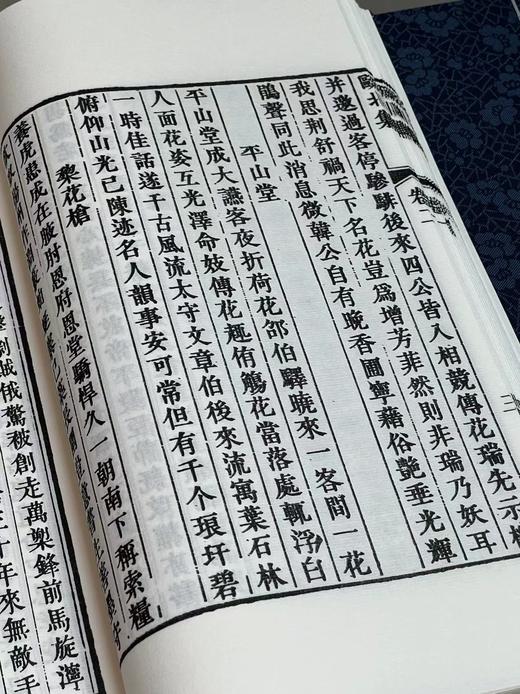 甌北集 卷二
井邊過客停驂騑後來四公皆入相競傳花瑞先示
我思荆舒禍天下名花豈爲增芳菲然則非瑞乃妖耳
鵑聲同此消息微韓公自有晚香圃寧藉俗艷垂光輝
平山堂
平山堂成大讌客夜折荷花邵伯驛曉來一客間一花
人面花姿互光澤命妓傳花趣侑觴花當落處輒浮白
一時佳話遂千古風流太守文章伯後來流寓葉石林
俯仰山光已陳迹名人韻事安可常但有千个琅玕碧
棃花槍
養虎患成在腋肘恩府恩堂驕悍久一朝南下稱索糧
劉戟俄驚被創走萬槊鋒前馬旋濘
十年來無敵手